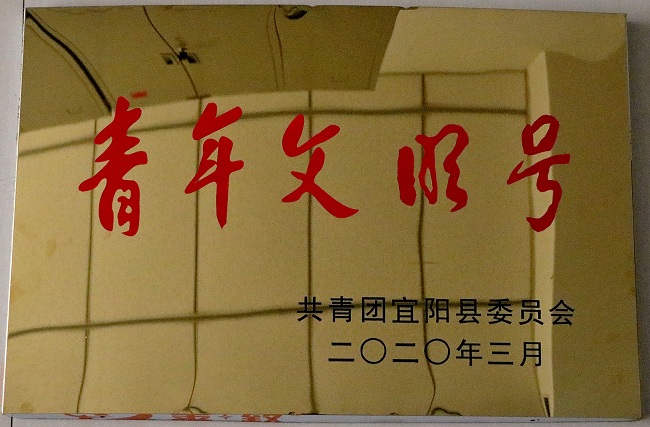 青年文明号
共青团宜阳县委员会
二〇二〇年三月